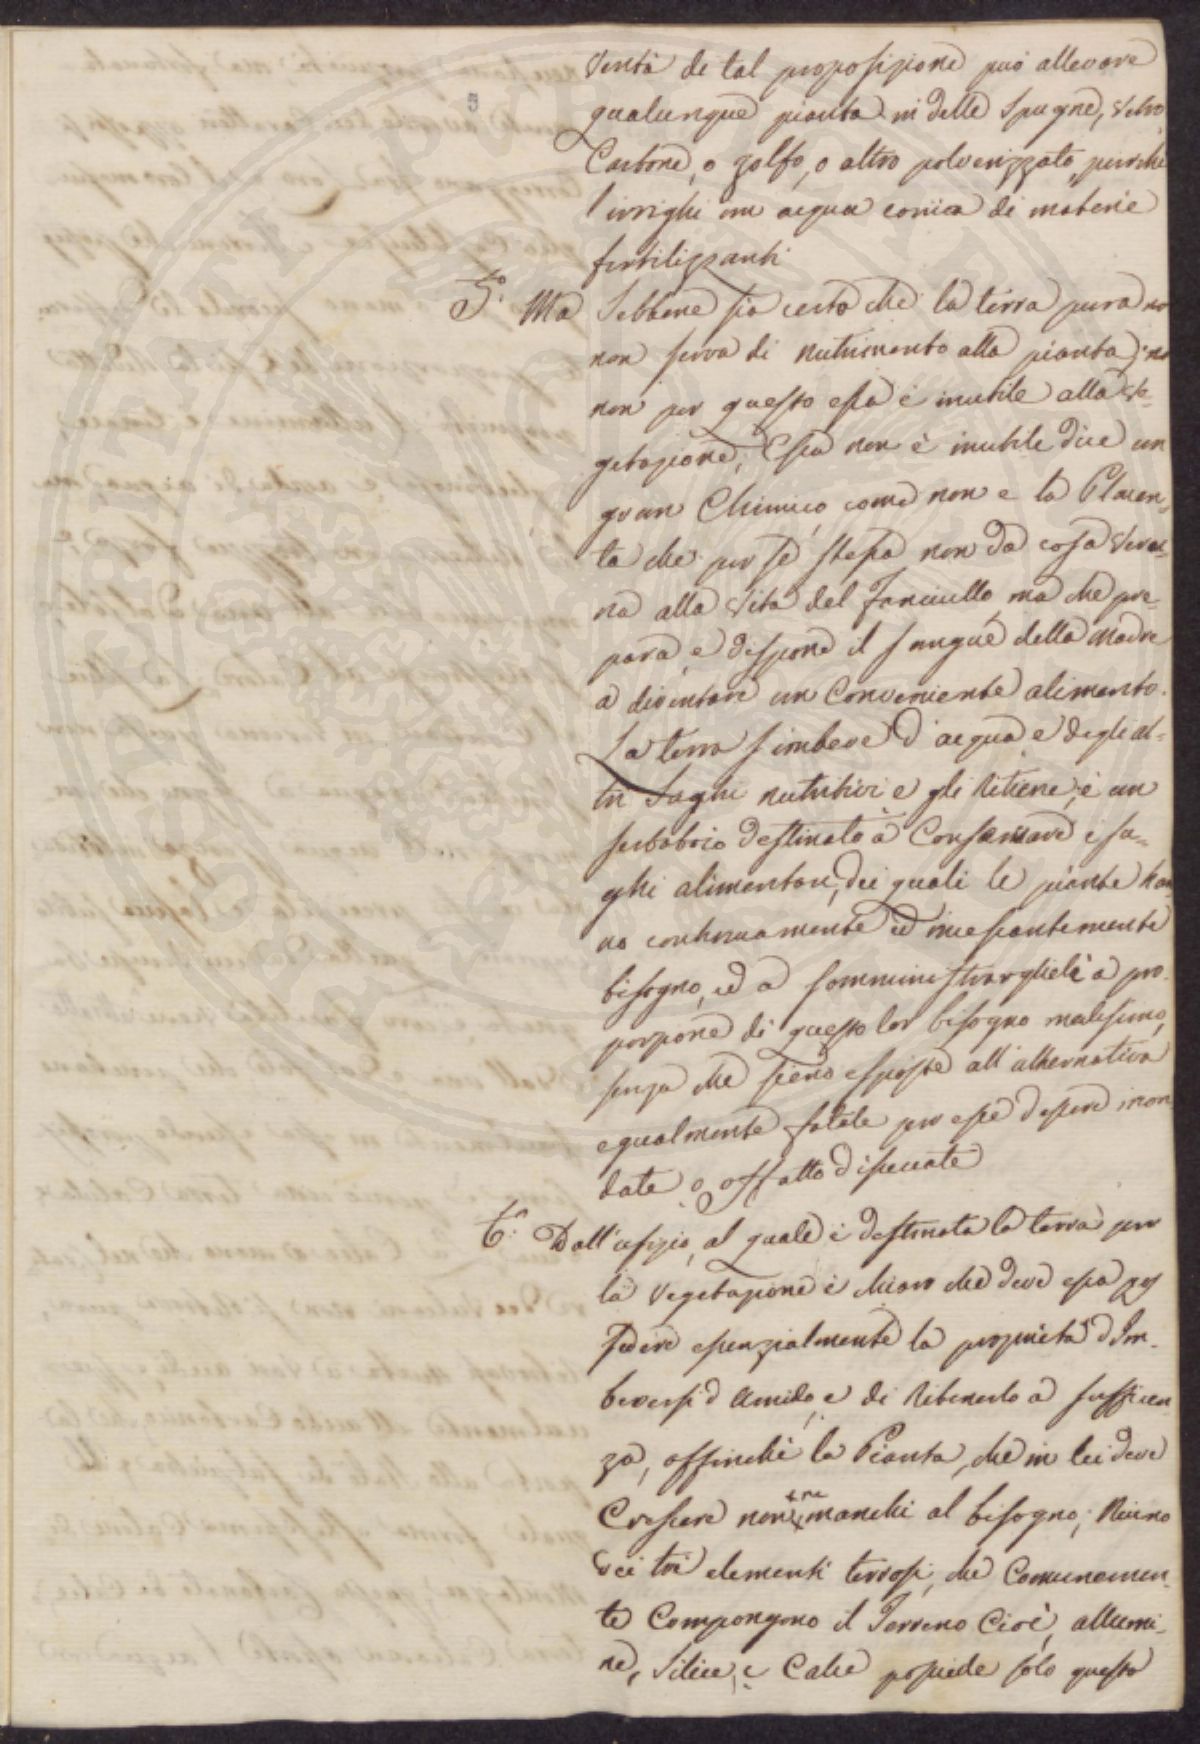 verità di tal proposizione può allevare
qualunque pianta in delle Spugne, Vetro,
Carbone, o zolfo, o altro polverizzato, purchè
l'irrighi con acqua carica di materie
fertilizzanti
5.º Ma Sebbene sia certo che la terra pura no
non serva di nutrimento alla pianta; no
non per questo essa è inutile alla Ve-
getazione; Essa non è inutile dice un
gran Chimico come non e la Placen-
ta che per se stessa non da cosa veru-
na alla vita del Fanciullo, ma che pre-
para, e dispone il sangue della Madre
a diventare un Conveniente alimento.
La terra s'imbeve d'acqua e degli al-
tri Sughi nutritivi e gli Ritiene; è un
serbatoio destinato a Conservare i su-
ghi alimentari, dei quali le piante han
no continuamente ed incessantemente
bisogno, ed a somministrarglieli a pro-
porzione di questo lor bisogno medesimo,
senza che sieno esposte all'alternativa
egualmente fatale per esse d'essere inon
date o affatto disseccate
6.º Dall'ufizio, al quale è destinata la terra per
la Vegetazione è chiaro che deve essa pos
sedere essenzialmente la proprietà d'Im-
beversi d'Umido, e di Ritenerlo a sufficien
za, affinchè la Pianta, che in lei deve
Crescere non ne manchi al bisogno; Niuno
dei tre elementi terrosi, che Comunemen-
te Compongono il Terreno Cioè, allumi-
ne, Silice, e Calce possiede solo questa